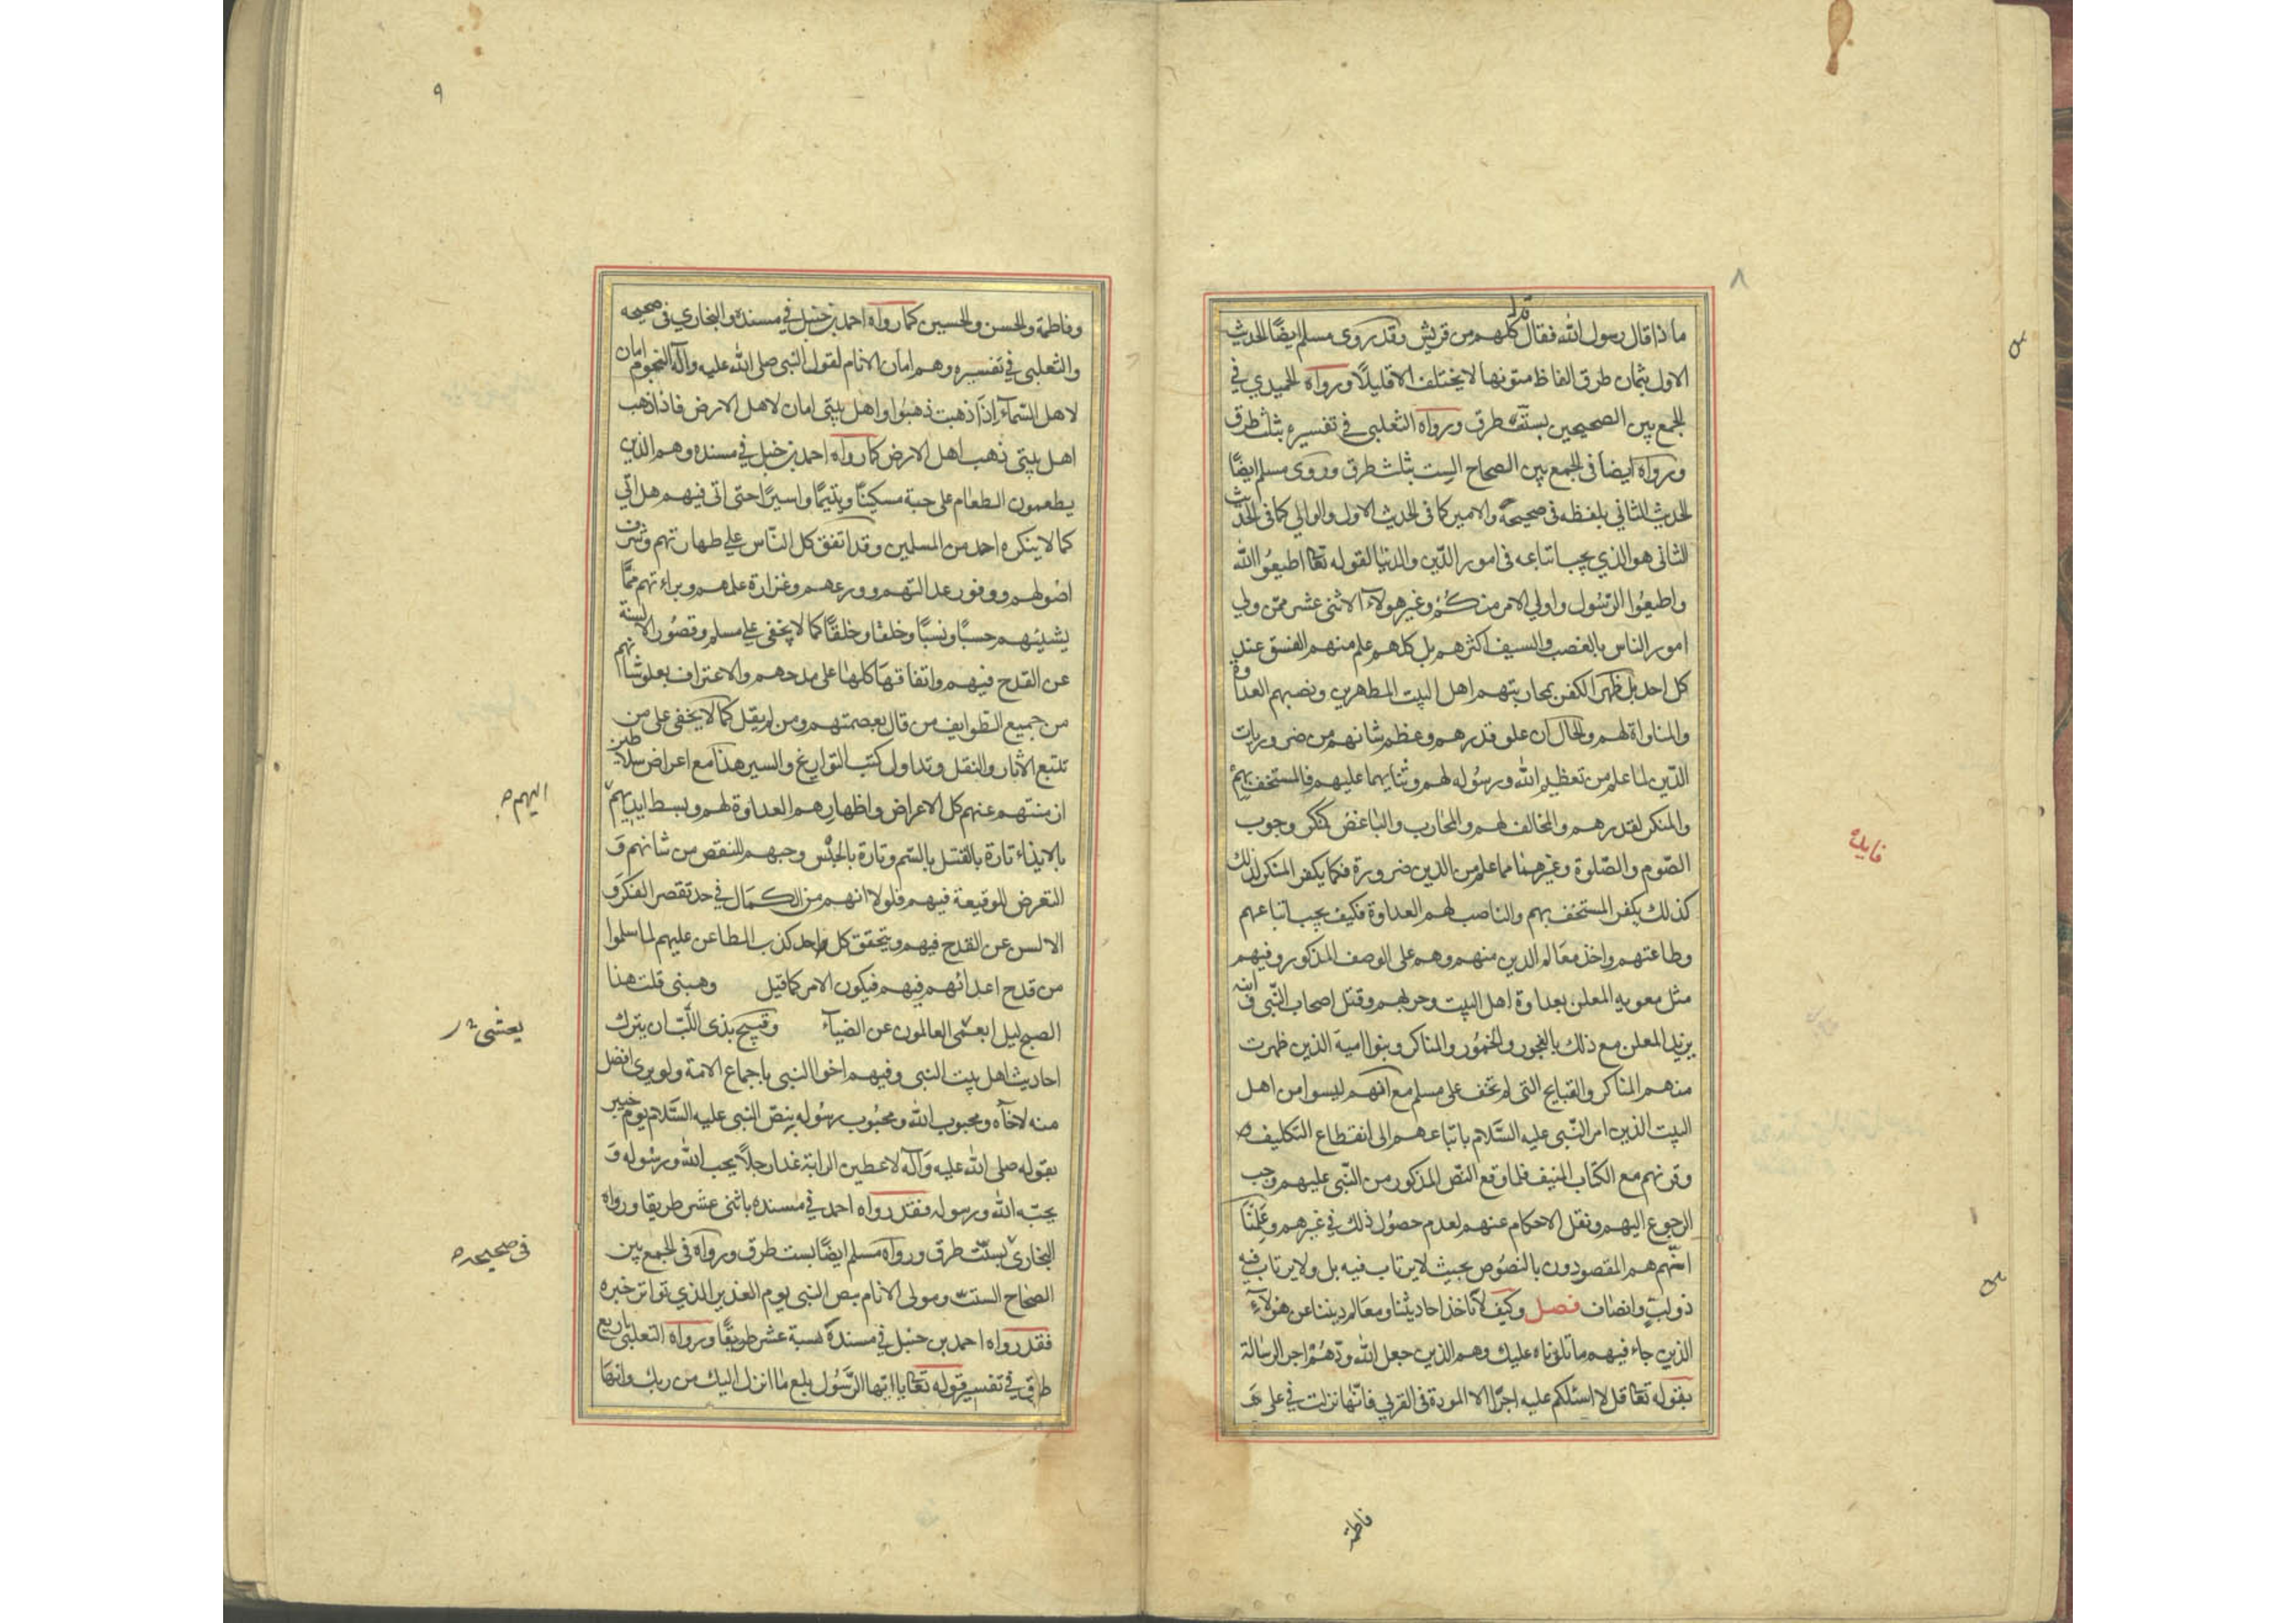 ٨
ما ذا قال رسول الله فقال قال كلهم من قريش وقد روى مسلم ايضًا الحديث
الاول بثمان طرق الفاظ متونها لا يختلف الا قليلًا ورواه الحميدي في
الجمع بين الصحيحين بستة طرق ورواه الثعلبي في تفسيره بثلث طرق
ورواه ايضا في الجمع بين الصحاح الست بثلث طرق وروى مسلم ايضًا
الحديث الثاني بلفظه في صحيحه والامير كما في الحديث الاول والوالي كما في الحديث
الثاني هو الذي يجب اتباعه في امور الدّين والدنيا لقوله تعا اطيعُوا الله
واطيعُوا الرّسُول واولي الامر منكُم وغير هولاء الاثنى عشر ممّن ولي
امور الناس بالغصب والسيف اكثرهم بل كلهم علم منهم الفسق عند
كل احد بل ظهر الكفر بمحاربتهم اهل البيت المطهرين ونصبهم العداوة
والمناواة لهم والحال ان علو قدرهم وعظم شانهم من ضروريات
الدّين لما علم من تعظيم الله ورسُوله لهم وثنايهما عليهم فالمستخف بهم
والمنكر لقدرهم والمخالف لهم والمحارب والباغض كمنكر وجوب
الصّوم والصّلوة وغيرهما مما علم من الدين ضرورة فكما يكفر المنكر لذلك
كذلك يكفر المستخف بهم والناصب لهم العداوة فكيف يجب اتباعهم
وطاعتهم واخذ معَالم الدين منهم وهم على الوصف المذكور وفيهم
مثل معويه المعلن بعداوة اهل البيت وحربهم وقتل اصحاب النّبي و ابنه
يزيد المعلن مع ذلك بالفجور والخمُور والمناكر وبنوا امية الذين ظهرت
منهم المناكر والقبايح التى لم تخف على مسلم مع انهم ليسوا من اهل
البيت الذين امر النّبي عليه السَّلام باتباعهم الى انقطاع التكليف
وقرنهم مع الكتاب المنيف فلما وقع النّص المذكور من النّبي عليهم وجب
الرجوع اليهم ونقل الاحكام عنهم لعدم حصُول ذلك في غيرهم وعلمنا
انّهم هم المقصودون بالنصُوص بحيث لا يرتاب فيه بل ولا يرتاب فيه
ذو لبّ وانصاف فصل وكيف لا ناخذ احاديثنا ومعَالم ديننا عن هولاءِ
الذين جاء فيهم ما تلوناه عليك وهم الذين جعل الله ودّهُم اجر الرسالة
بقوله تعا قل لا اسئلكم عليه اجرًا الا المودة في القربي فانّها نزلت في على و
فايدة
فاطمة
٩
وفاطمة والحسن والحسين كما رواه احمد بن حنبل في مسنده والبخاري في صحيحه
والثعلبى في تفسيره وهم امان الانام لقول النبى صلى الله عليه وآله النجوم امان
لاهل السّماء اذا ذهبت ذهبُوا واهل بيتي امان لاهل الارض فاذا ذهب
اهل بيتي ذهب اهل الارض كما رواه احمد بن حنبل في مسنده وهم الذين
يطعمون الطعام على حبه مسكينًا ويتيمًا واسيرًا حتى اتى فيهم هل اتي
كما لا ينكره احد من المسلمين وقد اتفق كل النّاس على طهارتهم وشرف
اصُولهم ووفور عدالتهم وورعهم وغزارة علمهم وبراءتهم ممّا
يشينُهم حسبًا ونسبًا وخلقا وخلقًا كما لا يخفى على مسلم وقصُور الالسنة
عن القدح فيهم واتفاقهَا كلها على مدحهم والاعتراف بعلو شانهم
من جميع الطوايف من قال بعصمتهم ومن لم يقل كما لا يخفى على من
تتبع الآثار والنقل وتداول كتب التواريخ والسير هذا مع اعراض سلاطين
ازمنتهم عنهم كل الاعراض واظهارهم العداوة لهم وبسط ايديهم
بالايذاء تارة بالقتل بالسّم وتارة بالحبْس وحبهم للنقص من شانهم و
التعرض للوقيعة فيهم فلولا انهم من الكمَال في حد تقصر الفكر و
الالسن عن القدح فيهم ويتحقق كل واحد كذب الطاعن عليهم لما سلموا
من قدح اعدائهم فيهم فيكون الامر كما قيل وهبنى قلت هذا
الصبح ليل ايعمى العالمون عن الضياء وقبيح بذى اللّب ان يترك
احاديث اهل بيت النبى وفيهم اخوا النبى باجماع الامة ولو يرى افضل
منه لاخآه ومحبوب الله ومحبُوب رسُوله بنصّ النبى عليه السَّلام يوم خيبر
بقوله صلى الله عليه وآله لاعطين الراية غدا رجلاً يحب الله ورسُوله و
يحبّه الله ورسوله فقد رواه احمد في مُسنده باثنى عشر طريقا ورواه
البخاري بستّ طرق ورواه مسلم ايضًا بست طرق ورواه في الجمع بين
الصحاح الستّ ومولى الانام بنص النبى يوم الغدير الذي تواتر خبره
فقد رواه احمد بن حنبل في مسنده بستة عشر طريقًا ورواه الثعلبي باربع
طرق في تفسير قوله تعا يا ايّها الرّسُول بلغ ما انزل اليك من ربك وانها
اليهم
يعشى
في صحيحه